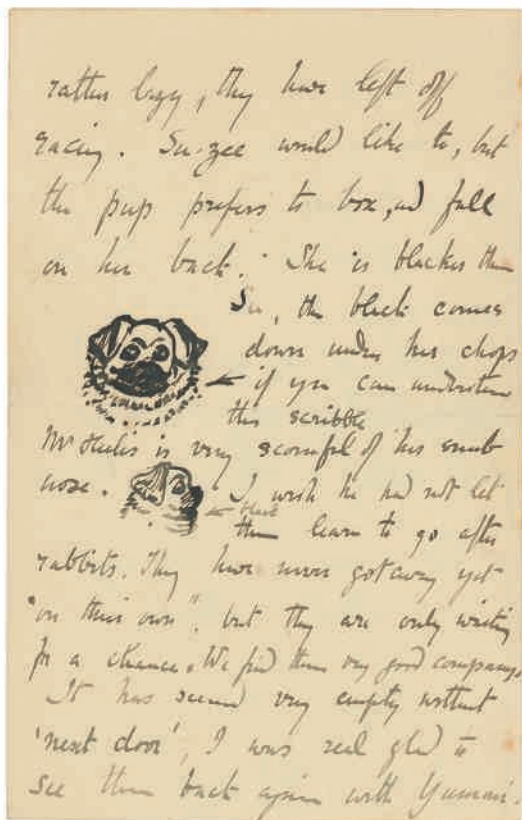 rather lazy, they have left off
racing. Su-zee would like to, but
the pup prefers to box, and fall
on her back. She is blacker than
Su, the black comes
down under her chops
if you can understand
this scribble
Mr Heelis is very scornful of her snub
nose. I wish he had not let
them learn to go after
rabbits. They have never got away yet
"on their own", but they are only waiting
for a chance. We find them very good company.
It has seemed very empty without
'next door', I was real glad to
see them back again with